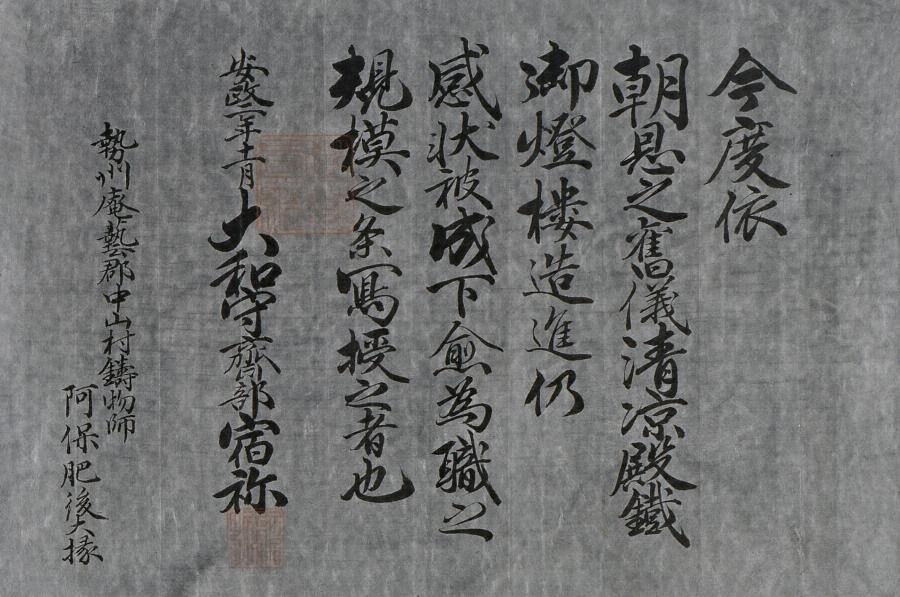 今度依
朝恩之舊儀清涼殿鐵
御燈楼造進仍
感状被成下愈為職之
規模之条寫授之者也
安政二年十一月 大和守齋部宿祢
勢州庵藝郡中山村鋳物師
阿保肥後大掾